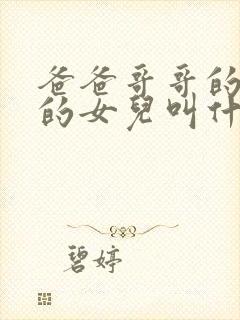 爸爸哥哥的
的女兒叫什
碧婷